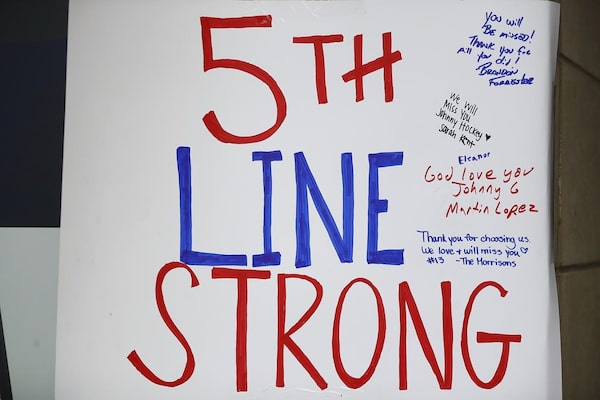 5TH
LINE
STRONG
You will
Be missed!
Thank you for
All you did!
Brandon
Forrester
We Will
Miss You
Johnny Hockey
Sarah Kent
Eleanor
God love you
Johnny G
Martin Lopez
Thank you for choosing us.
We love + will miss you
#13 -The Morrisons